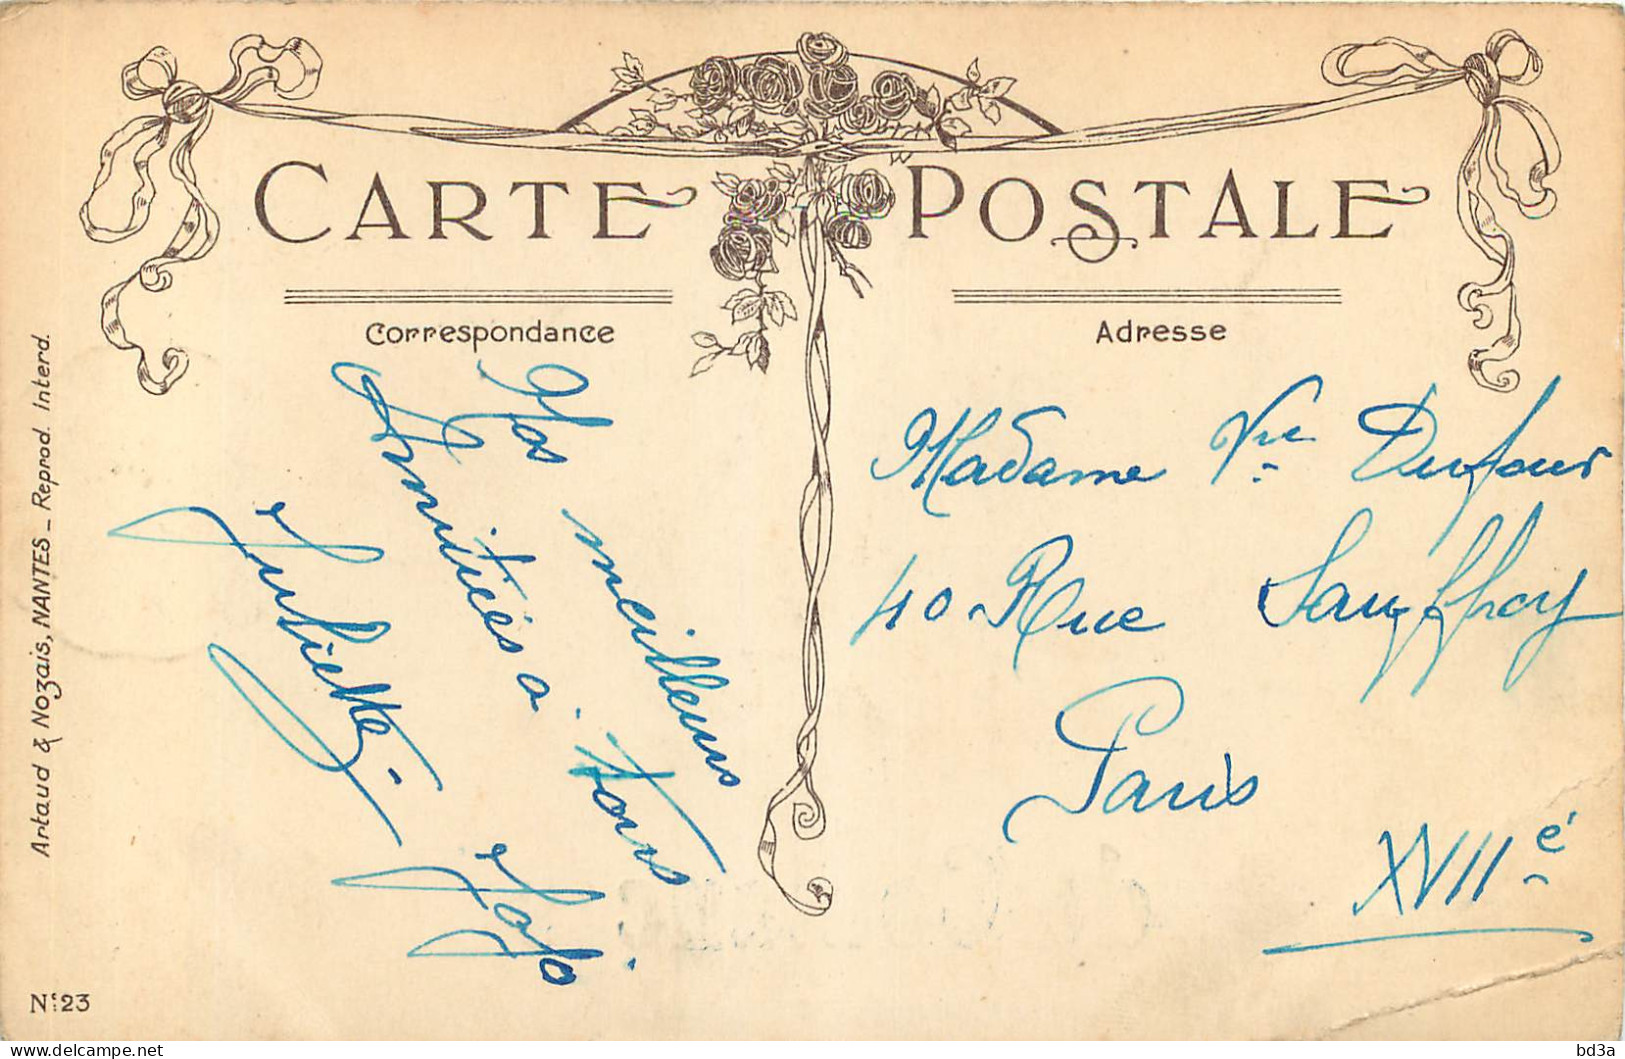 CARTE POSTALE
Correspondance
Nos meilleurs
Amitiés a tous
Juliette
Jojo
Adresse
Madame Vve Dufour
40 Rue Sauffroy
Paris
XVIIè
Artaud & Nozais, NANTES - Reprod. Interd.
N° 23
bd3a